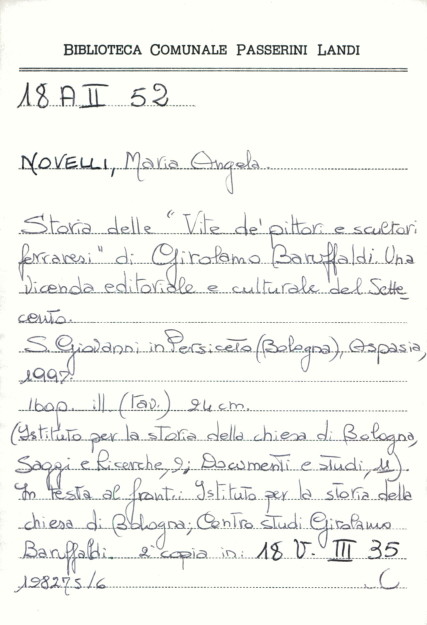 BIBLIOTECA COMUNALE PASSERINI LANDI
18 A II 52
NOVELLI, Maria Angela.
Storia delle "Vite de' pittori e scultori
ferraresi" di Girolamo Baruffaldi. Una
vicenda editoriale e culturale del Sette_
cento.
S. Giovanni in Persiceto (Bologna), Aspasia,
1997.
160p. ill. (tav.) 24 cm.
(Istituto per la storia della chiesa di Bologna,
Saggi e Ricerche, 9; Documenti e studi, 11).
In testa al front.: Istituto per la storia della
chiesa di Bologna; Centro studi Girolamo
Baruffaldi. 2ª copia in: 18 V. III 35
198275/6 C